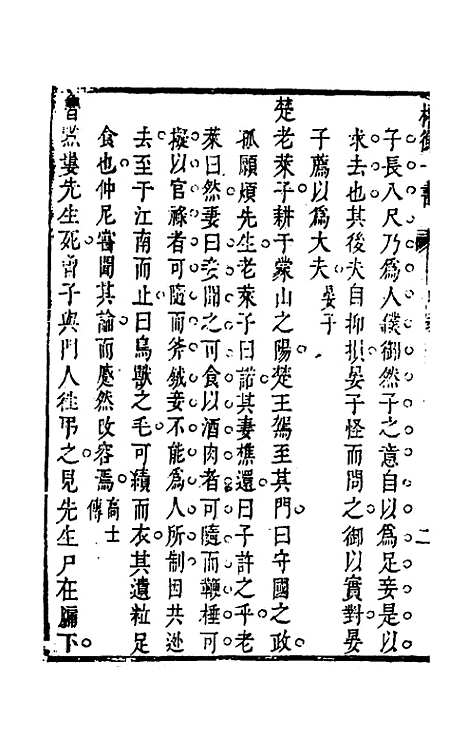 子長八尺乃爲人僕御然子之意自以爲足妾是以
求去也其後夫自抑損晏子怪而問之御以實對晏
子薦以爲大夫晏子
楚老萊子耕于蒙山之陽楚王駕至其門曰守國之政
孤願煩先生老萊子曰諾其妻樵還曰子許之乎老
萊曰然妻曰妾聞之可食以酒肉者可隨而鞭捶可
擬以官祿者可隨而斧鉞妾不能爲人所制因共逊
去至于江南而止曰鳥獸之毛可績而衣其遺粒足
食也仲尼嘗聞其論而蹙然改容焉高士傳
魯黔婁先生死曾子與門人往弔之見先生尸在牖下
二